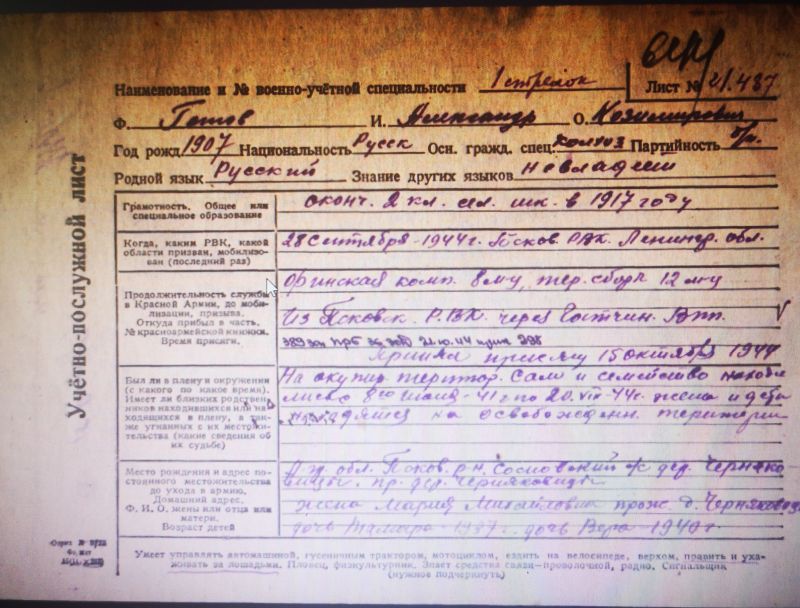 Учётно-послужной лист
Наименование и № военно-учётной специальности 1 стрелок Лист № 21.437
Ф. Титов И. Александр О. Козимирович
Год рожд 1907 Национальность Русск Осн. гражд. спец. колхоз Партийность б/п.
Родной язык Русский Знание других языков не владеет
Грамотность. Общее или
специальное образование
оконч. 2 кл. сел. шк. в 1917 году
Когда, каким РВК, какой
области призван, мобилизо-
ван (последний раз)
28 сентября-1944г. Псков. РВК. Ленингр. обл.
Продолжительность службы
в Красной Армии, до моби-
лизации, призыва.
Откуда прибыл в часть.
№ красноармейской книжки.
Время присяги.
Финская комп. 8 м-ц, тер. сборы 12 м-ц
Из Псковск. Р.В.К. через Гатчин. Впп.
21.10.44
Приня присягу 15 октября 1944
Был ли в плену и окружении
(с какого по какое время).
Имеет ли близких родствен-
ников находившихся или на-
ходящихся в плену, а так-
же угнанных с их местожи-
тельства (какие сведения об
их судьбе)
На окупир. территор. Сам и семейство находи
лись с 8го июля-41г по 20.VII-44г. жена и дети
находятся на освобожденн. територии
Место рождения и адрес по-
стоянного местожительства
до ухода в армию.
Домашний адрес.
Ф. И. О. жены или отца или
матери.
Возраст детей
обл. Псков. р-н. Сосновский с/с дер. Черняко-
вицы. пр. дер. Черняковицы
жена Мария Михайловна прож. д. Черняковицы
дочь Тамара 1937г. дочь Вера 1940г
Умеет управлять автомашиной, гусеничным трактором, мотоциклом, ездить на велосипеде, верхом, править и уха-
живать за лошадьми. Пловец, физкультурник. Знает средства связи—проволочной, радио. Сигнальщик
(нужное подчеркнуть)